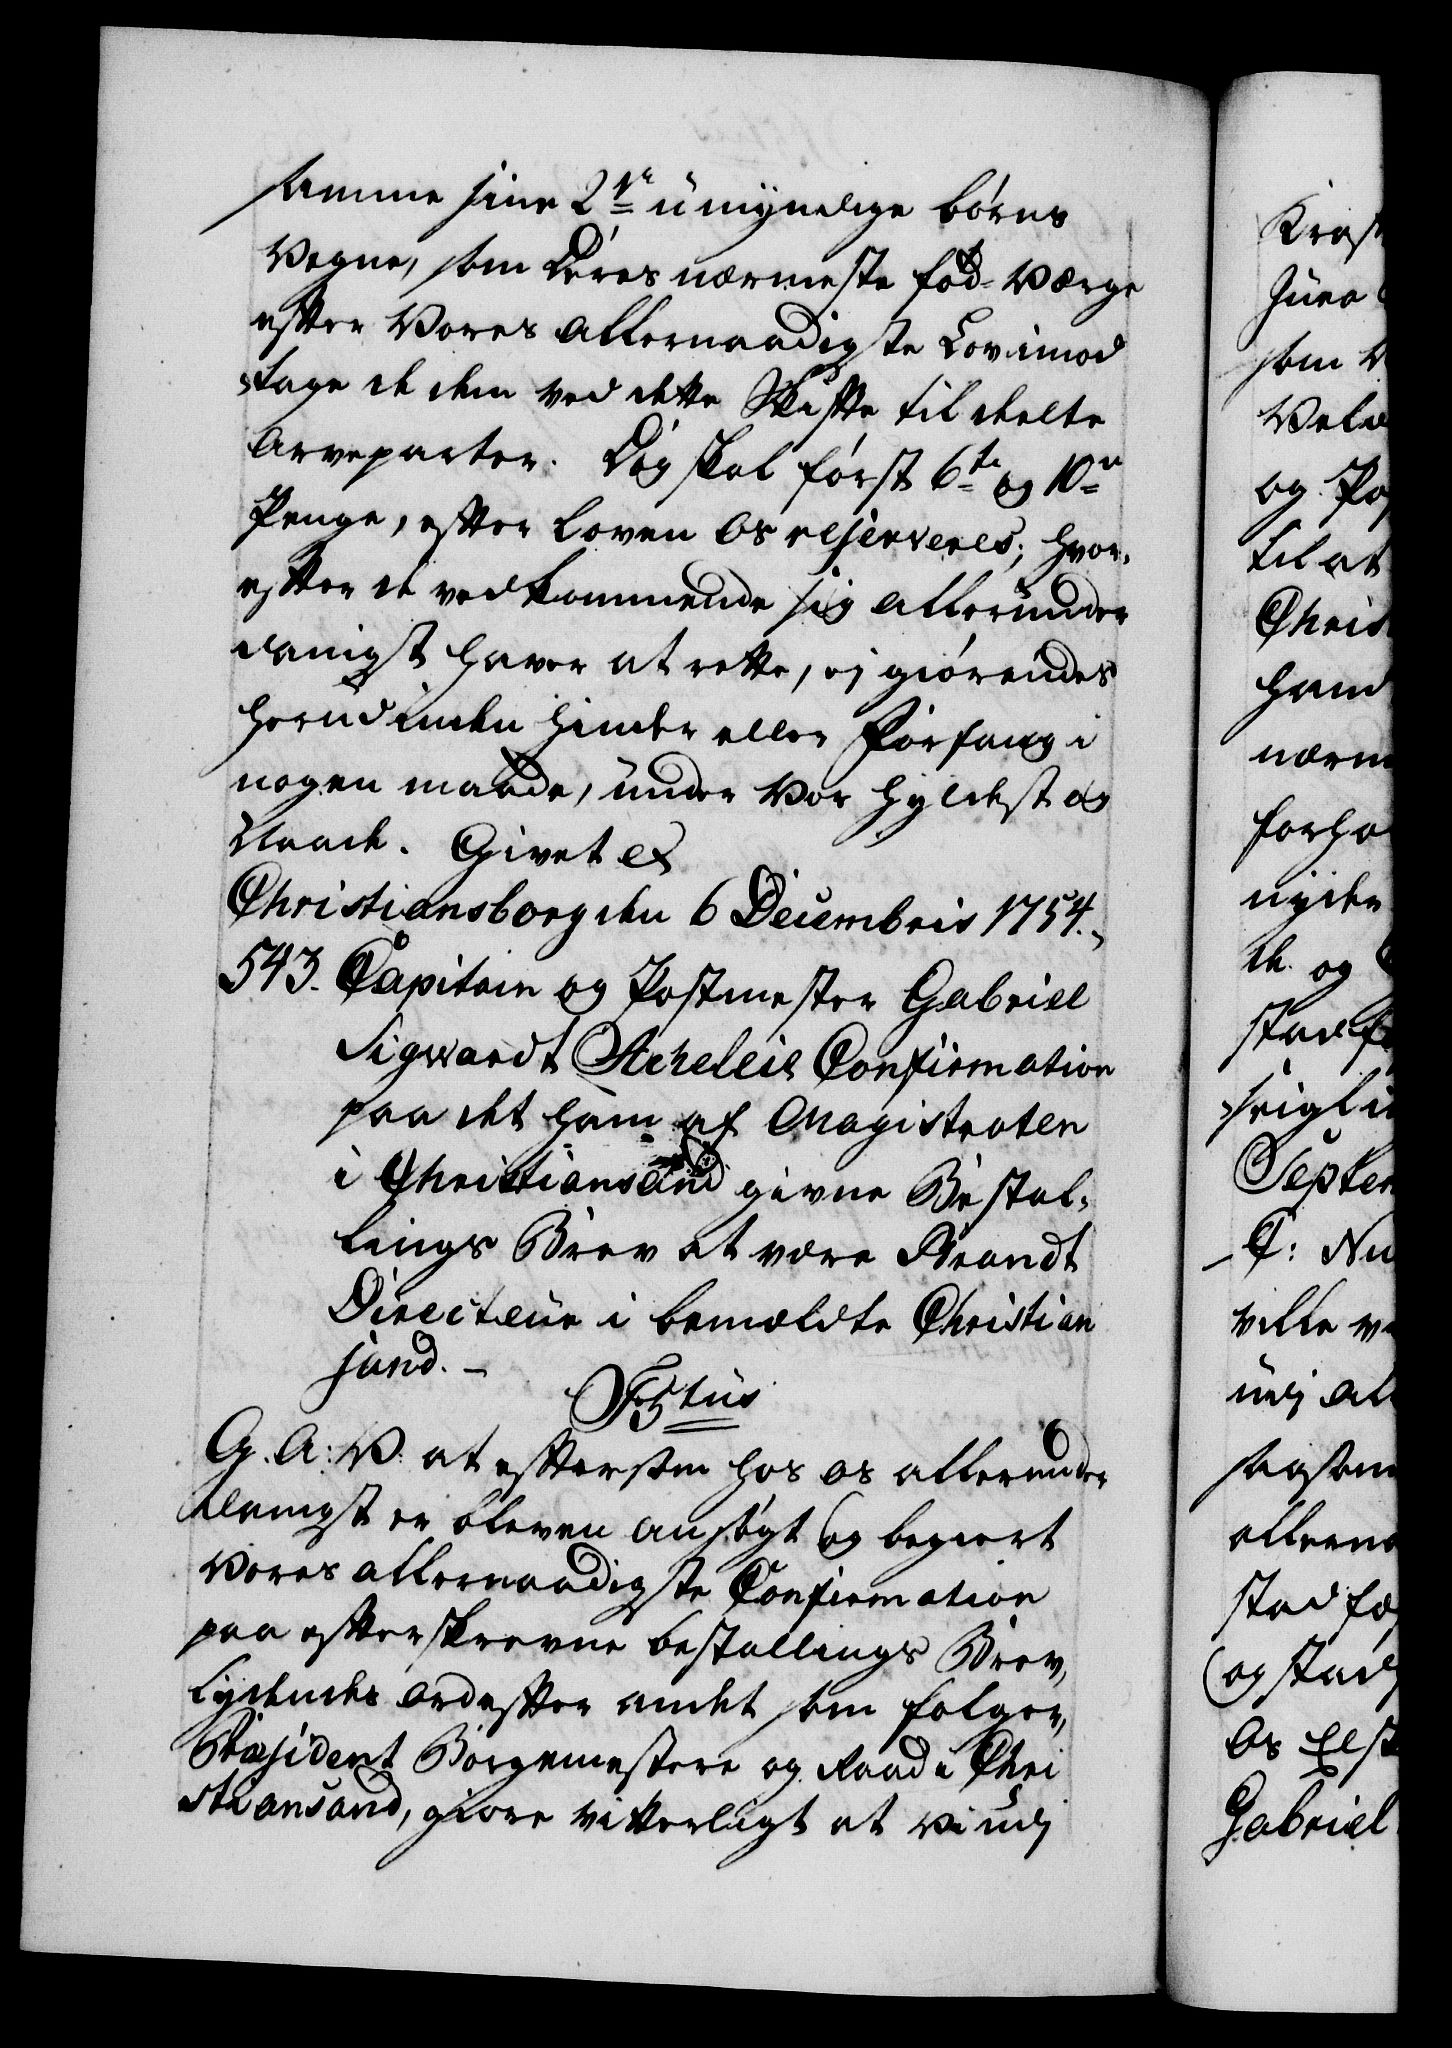 samme sine 2de umyndige børns
Vegne, som Deres nærmeste fød-Værge
efter Vores allernaadigste Lov imod
tage de dem ved dette Skifte tildeelte
Arveparter. Dog skal først 6te og 10de
Penge, efter Loven os reserveres; hvor-
efter de vedkommende sig allerunder
danigst haver at rette, ej giørendes
herudinden hinder eller Forfang i
nogen maade, under Vor Hyldest og
Naade. Givet etc
Christiansborg den 6 Decembris 1754.
543. Capitain og Postmester Gabriel
Sigvardt Acheleis Confirmation
paa det ham af Magistraten
i Christiansand givne Bestal-
lings Brev at være Brandt
Directeur i bemeldte Christian
sand. -
F5tus
G. A: V. at eftersom hos os allerunder
danigst er bleven ansøgt og begiert
Vores allernaadigste Confirmation
paa efterskrevne bestallings Brev,
Lydendes ord efter andet som følger,
Præsident Borgemestere og Raad i Chri
stiansand, giøre vitterligt at Vi udj
Krafft
som V
og Po
til at
Christ
ham
nærm
forho
nyde
de og
Septem
C: Nu
ville v
udj al
saasom
allerna
stadfæ
og stadf
Os
Gabriel